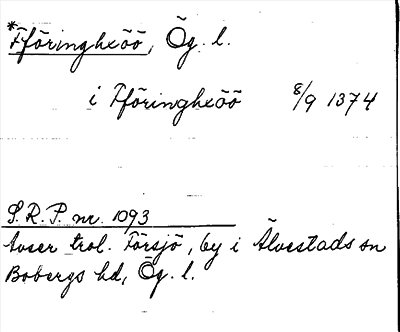 *Fföringhxöö, Ög. l.
i Fföringhxöö 8/9 1374
S.R.P. nr. 1093
Avser trol. Försjö, by i Älvestads sn
Bobergs hd, Ög. l.